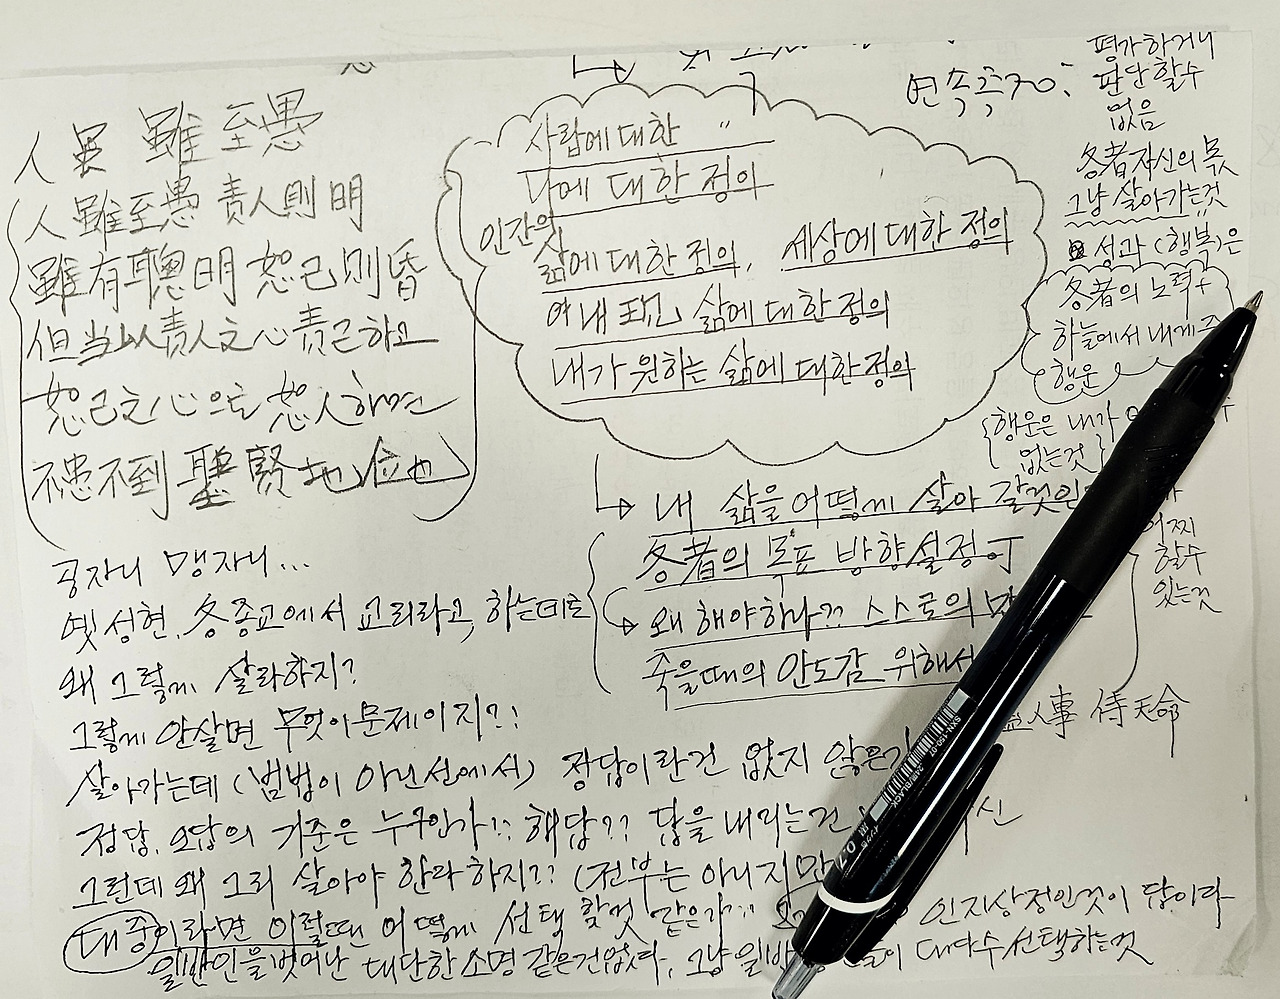 人 虽 雖 至愚
人雖至愚 責人則明
雖有聰明 恕己則昏
但当以責人之心 責己하고
恕己之心으로 恕人하면
不患不到 聖賢地位也
사람에 대한 "
나에 대한 정의
인간의
삶에 대한 정의, 세상에 대한 정의
내 삶에 대한 정의
내가 원하는 삶에 대한 정의
연속측정:
평가하거나
판단할수
없음
各者 자신의 몫
그냥 살아가는것
성과 (행복)은
各者의 노력 +
하늘에서 내게
행운
행운은 내가
없는것
어찌
할수
있는것
내 삶을 어떻게 살아 갈것인
各者의 목표 방향설정
왜 해야하나?? 스스로의
죽을때의 안도감 위해서
人事 待天命
공자니 맹자니...
옛 성현, 各종교에서 교리라고, 하는데로
왜 그렇게 살라하지?
그렇게 안살면 무엇이 문제이지?!
살아가는데 (범법이 아닌선에서) 정답이란건 없지 않은가
정답, 오답의 기준은 누구인가!? 해답?? 답을 내리는건 신
그런데 왜 그리 살아야 한다 하지?? (전부는 아니지만
대중이라면 이럴땐 어떻게 선택 할것 같은가 인지상정인것이 답이다
일반인을 벗어난 대단한 소명 같은건없다, 그냥 일반 들이 대다수 선택하는것
SXN-150-07
24/BLACK
0.7